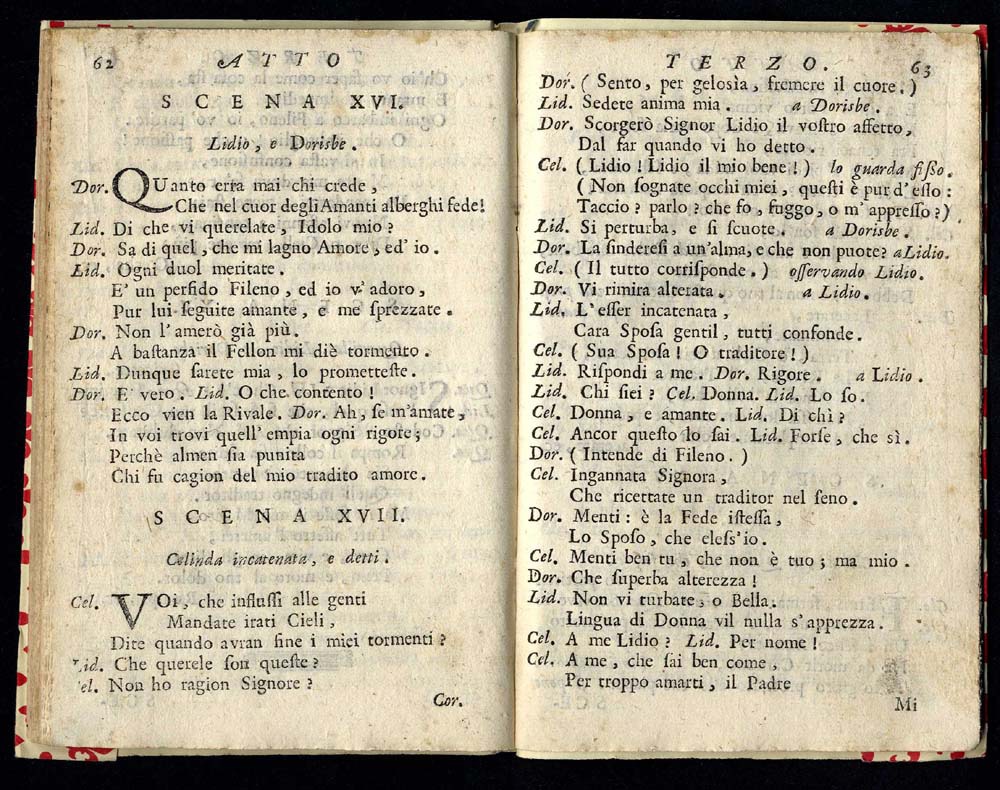 62 ATTO
SCENA XVI.
Lidio, e Dorisbe.
Dor. QUanto erra mai chi crede,
Che nel cuor degli Amanti alberghi fede!
Lid. Di che vi querelate, Idolo mio?
Dor. Sa di quel, che mi lagno Amore, ed' io.
Lid. Ogni duol meritate.
E' un perfido Fileno, ed io v' adoro,
Pur lui ſeguite amante, e me ſprezzate.
Dor. Non l'amerò già più.
A baſtanza il Fellon mi diè tormento.
Lid. Dunque ſarete mia, lo prometteſte.
Dor. E' vero. Lid. O che contento!
Ecco vien la Rivale. Dor. Ah, ſe m'amate,
In voi trovi quell' empia ogni rigore;
Perchè almen ſia punita
Chi fu cagion del mio tradito amore.
SCENA XVII.
Celinda incatenata, e detti.
Cel. VOi, che influſſi alle genti
Mandate irati Cieli,
Dite quando avran fine i miei tormenti?
Lid. Che querele ſon queſte?
Cel. Non ho ragion Signore?
Cor.
TERZO. 63
Dor. (Sento, per gelosìa, fremere il cuore.)
Lid. Sedete anima mia. a Dorisbe.
Dor. Scorgerò Signor Lidio il voſtro affetto,
Dal far quando vi ho detto.
Cel. (Lidio! Lidio il mio bene!) lo guarda fiſſo.
(Non ſognate occhi miei, queſti è pur d'eſſo:
Taccio? parlo? che fo, fuggo, o m'appreſſo?)
Lid. Si perturba, e ſi ſcuote. a Dorisbe.
Dor. La ſindereſi a un'alma, e che non puote? a Lidio.
Cel. (Il tutto corriſponde.) oſſervando Lidio.
Dor. Vi rimira alterata. a Lidio.
Lid. L'eſſer incatenata,
Cara Spoſa gentil, tutti confonde.
Cel. (Sua Spoſa! O traditore!)
Lid. Riſpondi a me. Dor. Rigore. a Lidio.
Lid. Chi ſiei? Cel. Donna. Lid. Lo ſo.
Cel. Donna, e amante. Lid. Di chì?
Cel. Ancor queſto lo ſai. Lid. Forſe, che sì.
Dor. (Intende di Fileno.)
Cel. Ingannata Signora,
Che ricettate un traditor nel ſeno.
Dor. Menti: è la Fede iſteſſa,
Lo Spoſo, che eleſſ'io.
Cel. Menti ben tu, che non è tuo; ma mio.
Dor. Che ſuperba alterezza!
Lid. Non vi turbate o Bella.
Lingua di Donna vil nulla s'apprezza.
Cel. A me Lidio? Lid. Per nome!
Cel. A me, che ſai ben come,
Per troppo amarti, il Padre
Mi